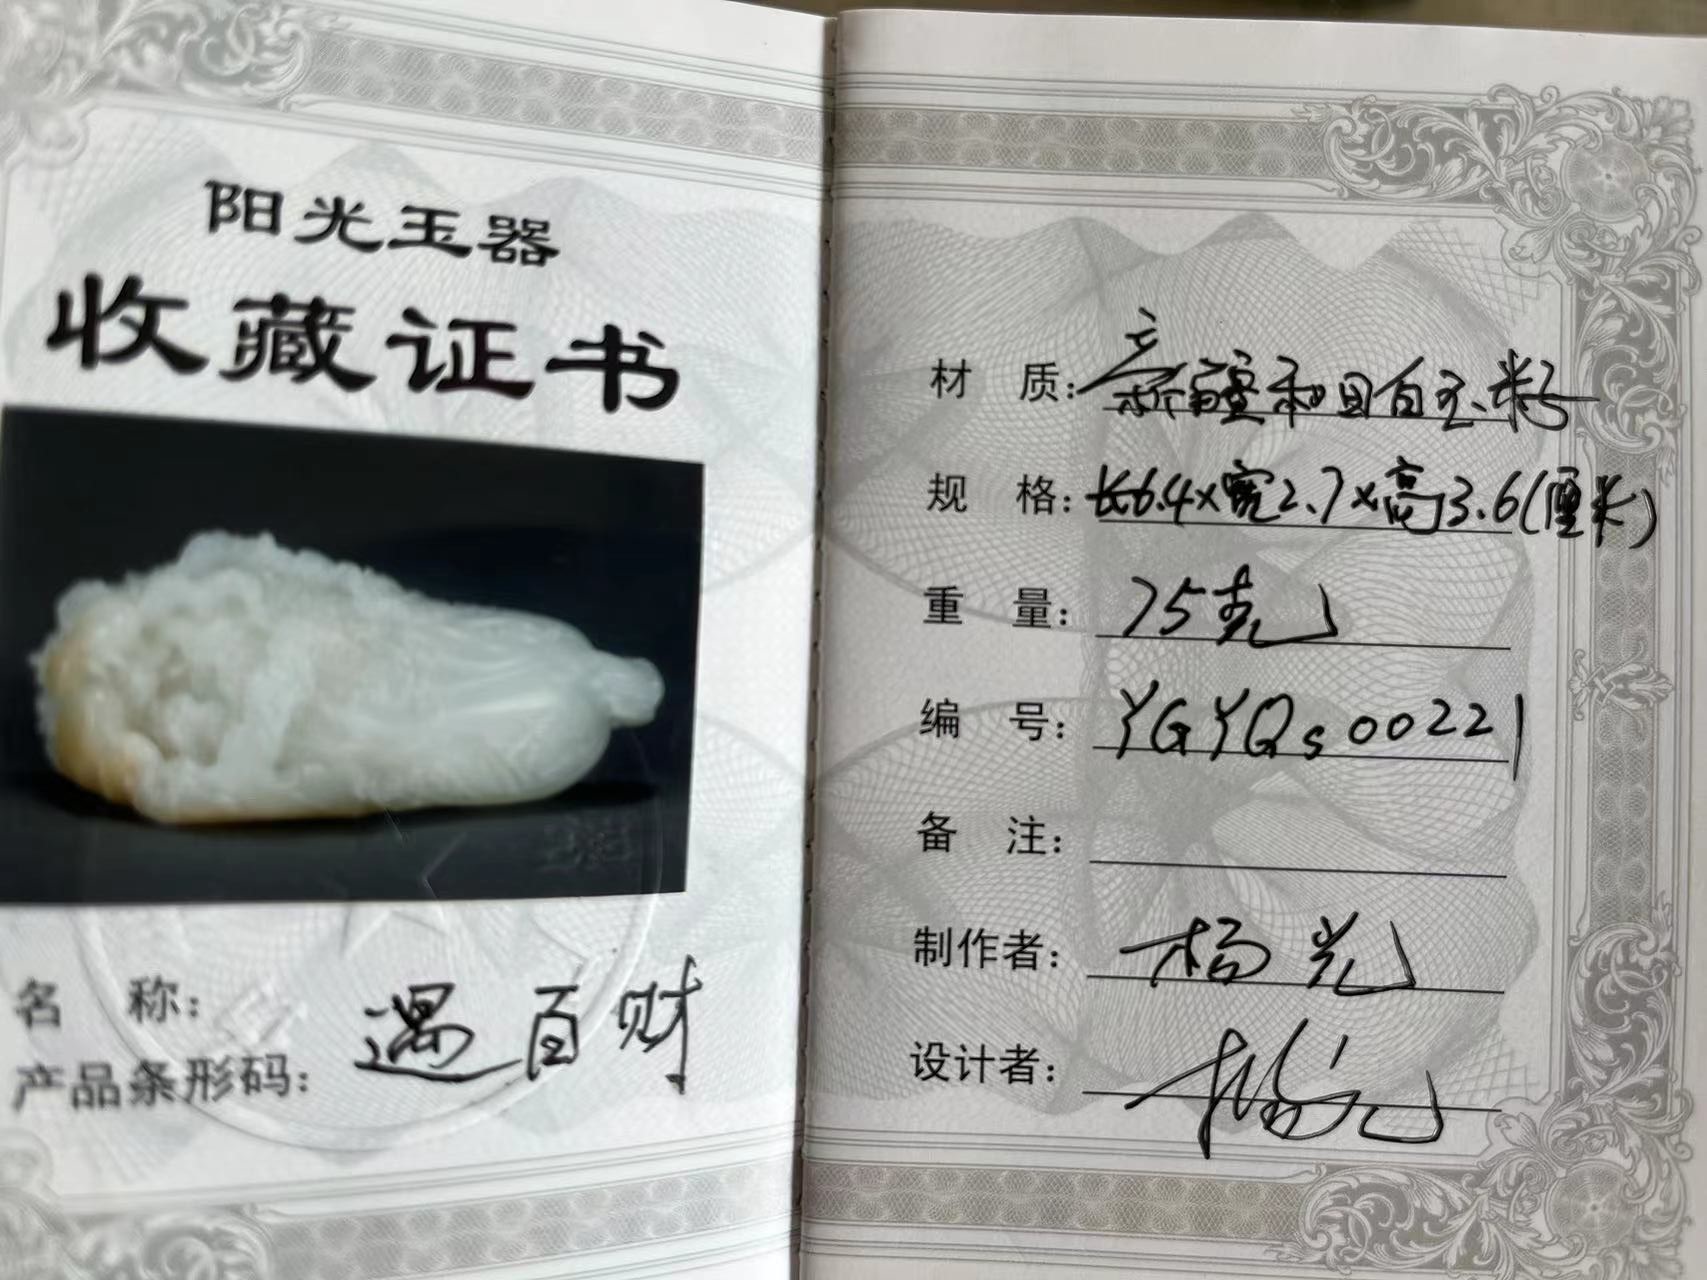 阳光玉器
收藏证书
名 称：遇百财
产品条形码：
材 质：新疆和田白玉籽
规 格：长6.4×宽2.7×高3.6(厘米)
重 量：75克
编 号：YGYQs00221
备 注：
制作者：杨光
设计者：杨光